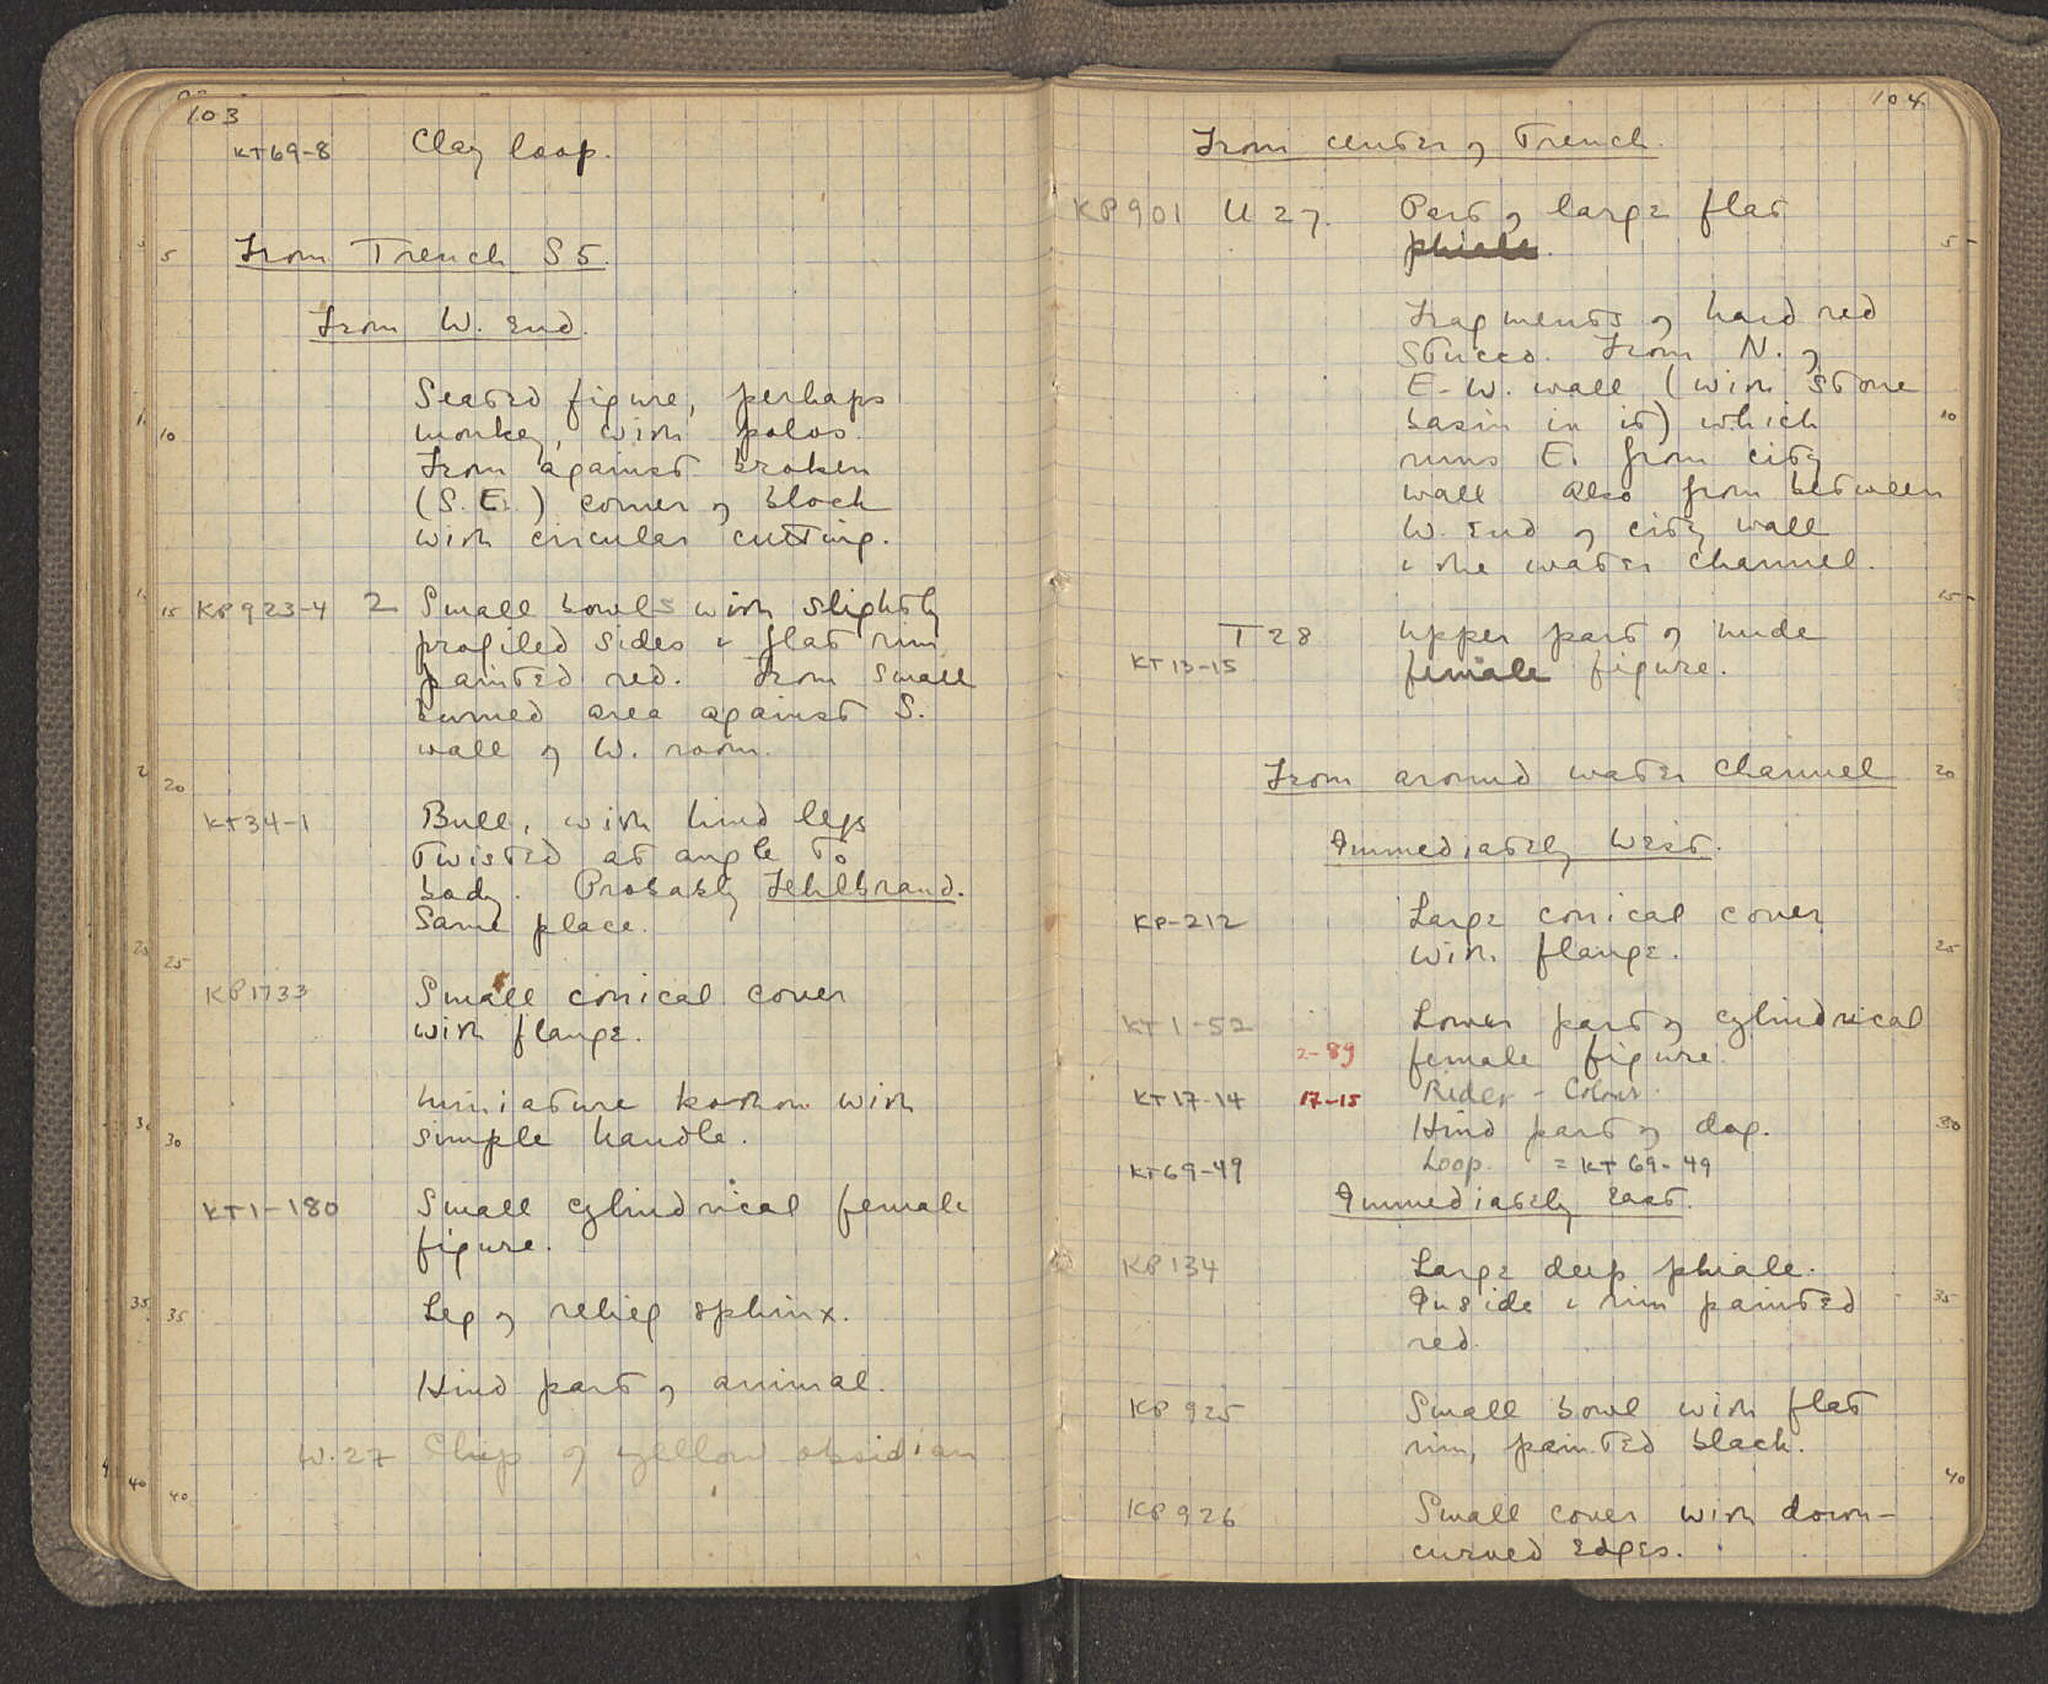 103
KT69-8 Clay loop.
From Trench S5.
From W. End.
Seated figure, perhaps
monkey, with polos.
From against broken
(S.E.) corner of block
with circular cutting.
KP923-4 2 Small bowls with slightly
profiled sides & flat rim
painted red. From small
burned area against S.
wall of W. room.
KT34-1 Bull, with hind legs
twisted at angle to
body. Probably Fehlbrand.
Same place.
KP1733 Small conical cover
with flange.
Miniature kothon with
simple handle.
KT1-180 Small cylindrical female
figure.
Leg of relief sphinx.
Hind part of animal.
W.27 Chip of yellow obsidian
5
10
15
20
25
30
35
40
104
From center of Trench.
KP901 U27. Part of large flat
phiale.
Fragments of hard red
stucco. From N. of
E-W. wall (with stone
basin in it) which
runs E. from city
wall also from between
W. End of city wall
& the water channel.
T28 Upper part of nude
KT13-15 female figure.
From around water channel
Immediately West.
KP-212 Large conical cover
with flange.
KT1-52 Lower part of cylindrical
2-89 female figure.
KT17-14 17-15 Rider - Colour.
Hind part of dog.
KT69-49 Loop. = KT 69-49
Immediately East.
KP134 Large deep phiale.
Inside & rim painted
red.
KP 925 Small bowl with flat
rim, painted black.
KP926 Small cover with down-
curved edges.
5
10
15
20
25
30
35
40